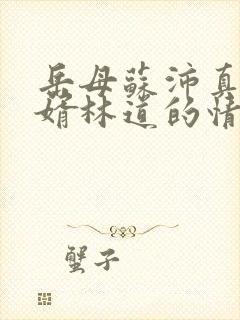 岳母蘇沛真
婿林道的情
蟹子